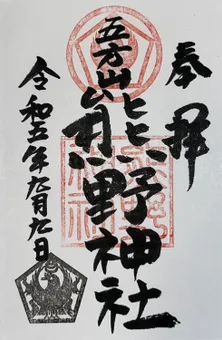 奉拝
五方山
熊野神社
令和五年九月九日